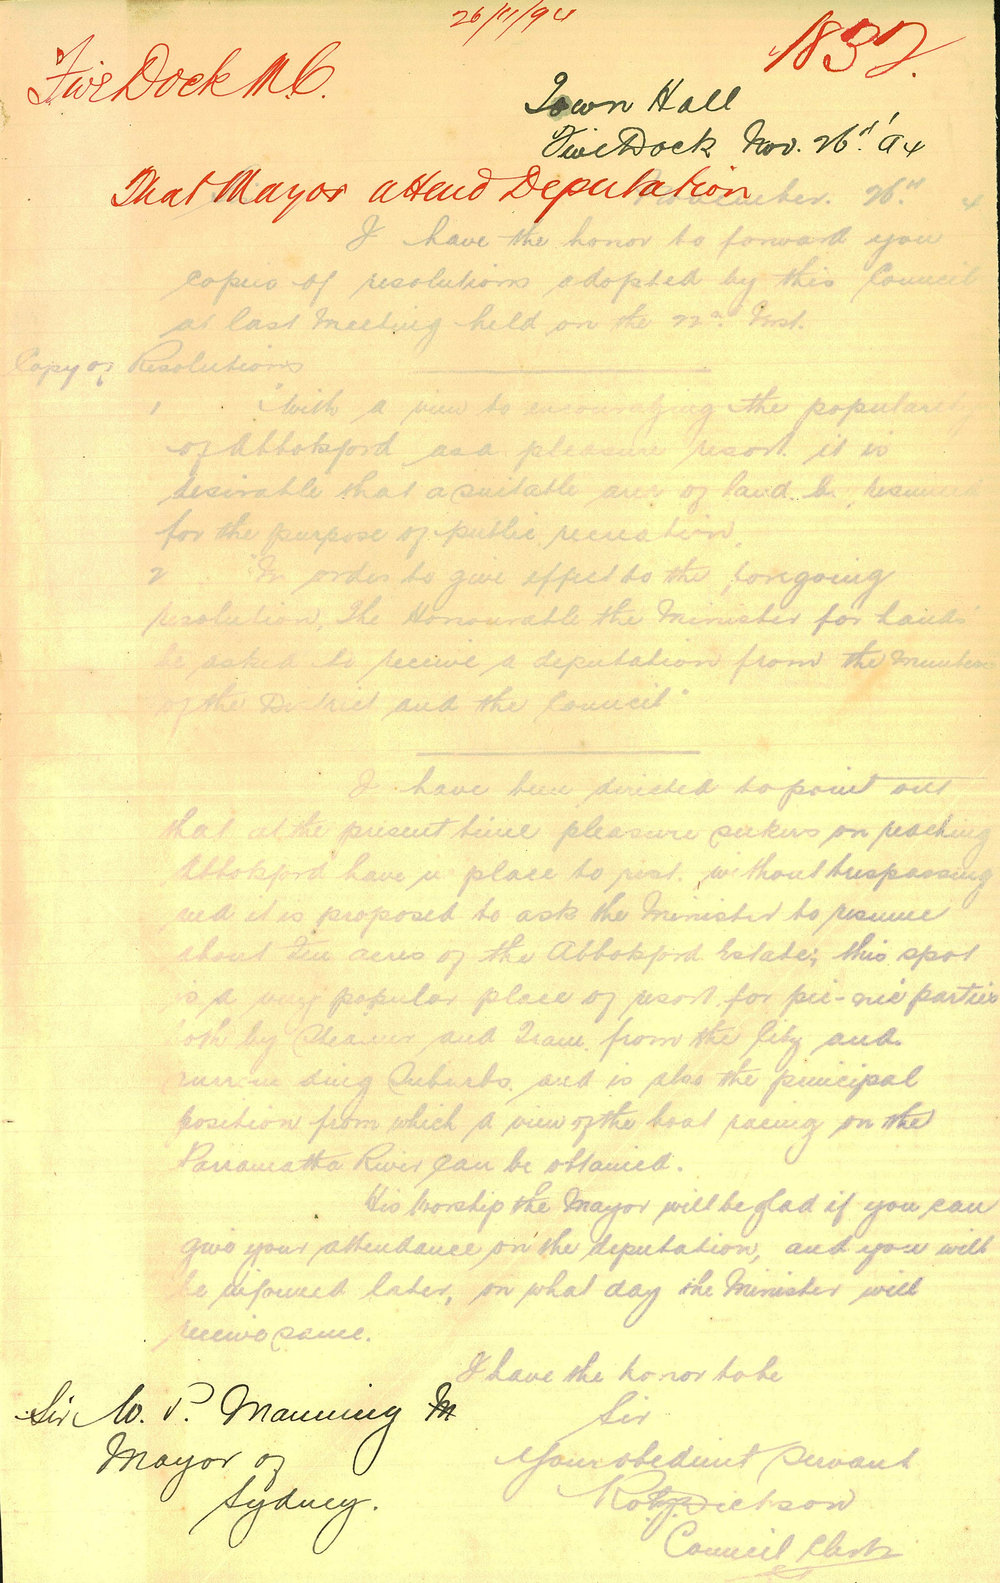 26/11/94
Five Dock M.C.
1832.
Town Hall
Five Dock Nov. 26th '94
That Mayor attend Deputation
November. 26th 4
I have the honor to forward you
copies of resolutions adopted by this Council
at last Meeting held on the 22nd Inst.
Copy of Resolutions
1 "With a view to encouraging the popularity
of Abbotsford as a pleasure resort it is
desirable that a suitable area of land be resumed
for the purpose of public recreation.
2 "In order to give effect to the foregoing
resolution, The Honourable the Minister for Lands
be asked to receive a deputation from the Members
of the District and the Council"
I have been directed to point out
that at the present time pleasure seekers on reaching
Abbotsford have no place to rest, without trespassing
and it is proposed to ask the Minister to resume
about Ten acres of the Abbotsford Estate; this spot
is a very popular place of resort for pic-nic parties
both by Steamer and Tram from the City and
surrounding Suburbs and is also the principal
position from which a view of the boat racing on the
Parramatta River can be obtained.
His Worship the Mayor will be glad if you can
give your attendance on the deputation, and you will
be informed later, on what day the Minister will
receive same.
I have the honor to be
Sir W. P. Manning
Sir
Mayor of
Your obedient servant
Sydney.
Dickson
Council Clerk